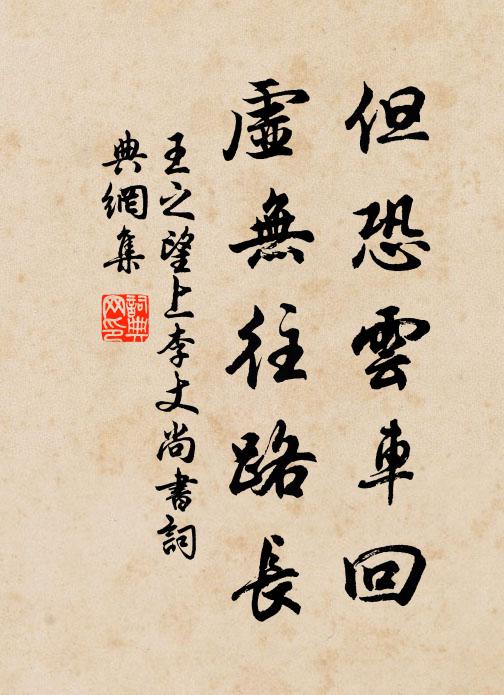 但恐雲車回
虛無往路長
王之望上李丈尚書詞
典網集
詞典
网印